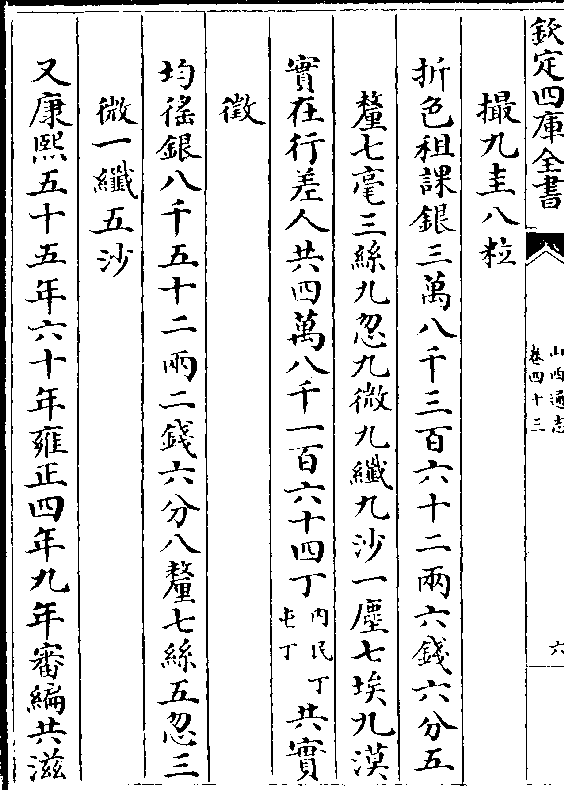 欽定四庫全書
山西通志
卷四十三
六
撮九圭八粒
折色租課銀三萬八千三百六十二兩六錢六分五
釐七毫三絲九忽九微九纖九沙一塵七埃九漠
實在行差人共四萬八千一百六十四丁內民丁屯丁共實
徵
均徭銀八千五十二兩二錢六分八釐七絲五忽三
微一纖五沙
又康熙五十五年六十年雍正四年九年審編共滋